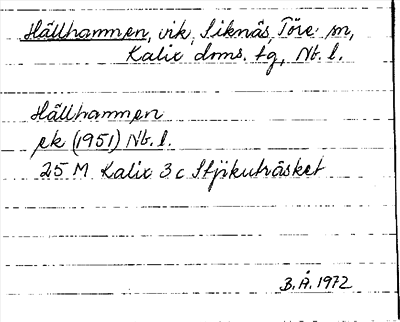 Hällhamnen, vik, Siknäs, Töre sn,
Kalix doms. tg, Nb. l.
Hällhamnen
ek (1951) Nb. l.
25 M Kalix 3 c Stjikuträsket
B. Å. 1972